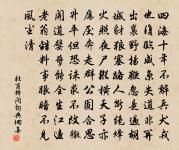 四海十年不解兵犬戎
也復臨咸京失道非關
出襄野揚鞭忽是過胡
城豺狼塞路人斷絕烽
火照夜屍縱橫天子亦
應厭奔走群公固合思
升平但恐誅求不改轍
聞道嬖孽能全生江邊
老翁錯料事眼暗不見
風塵清
杜甫釋悶詞典網書